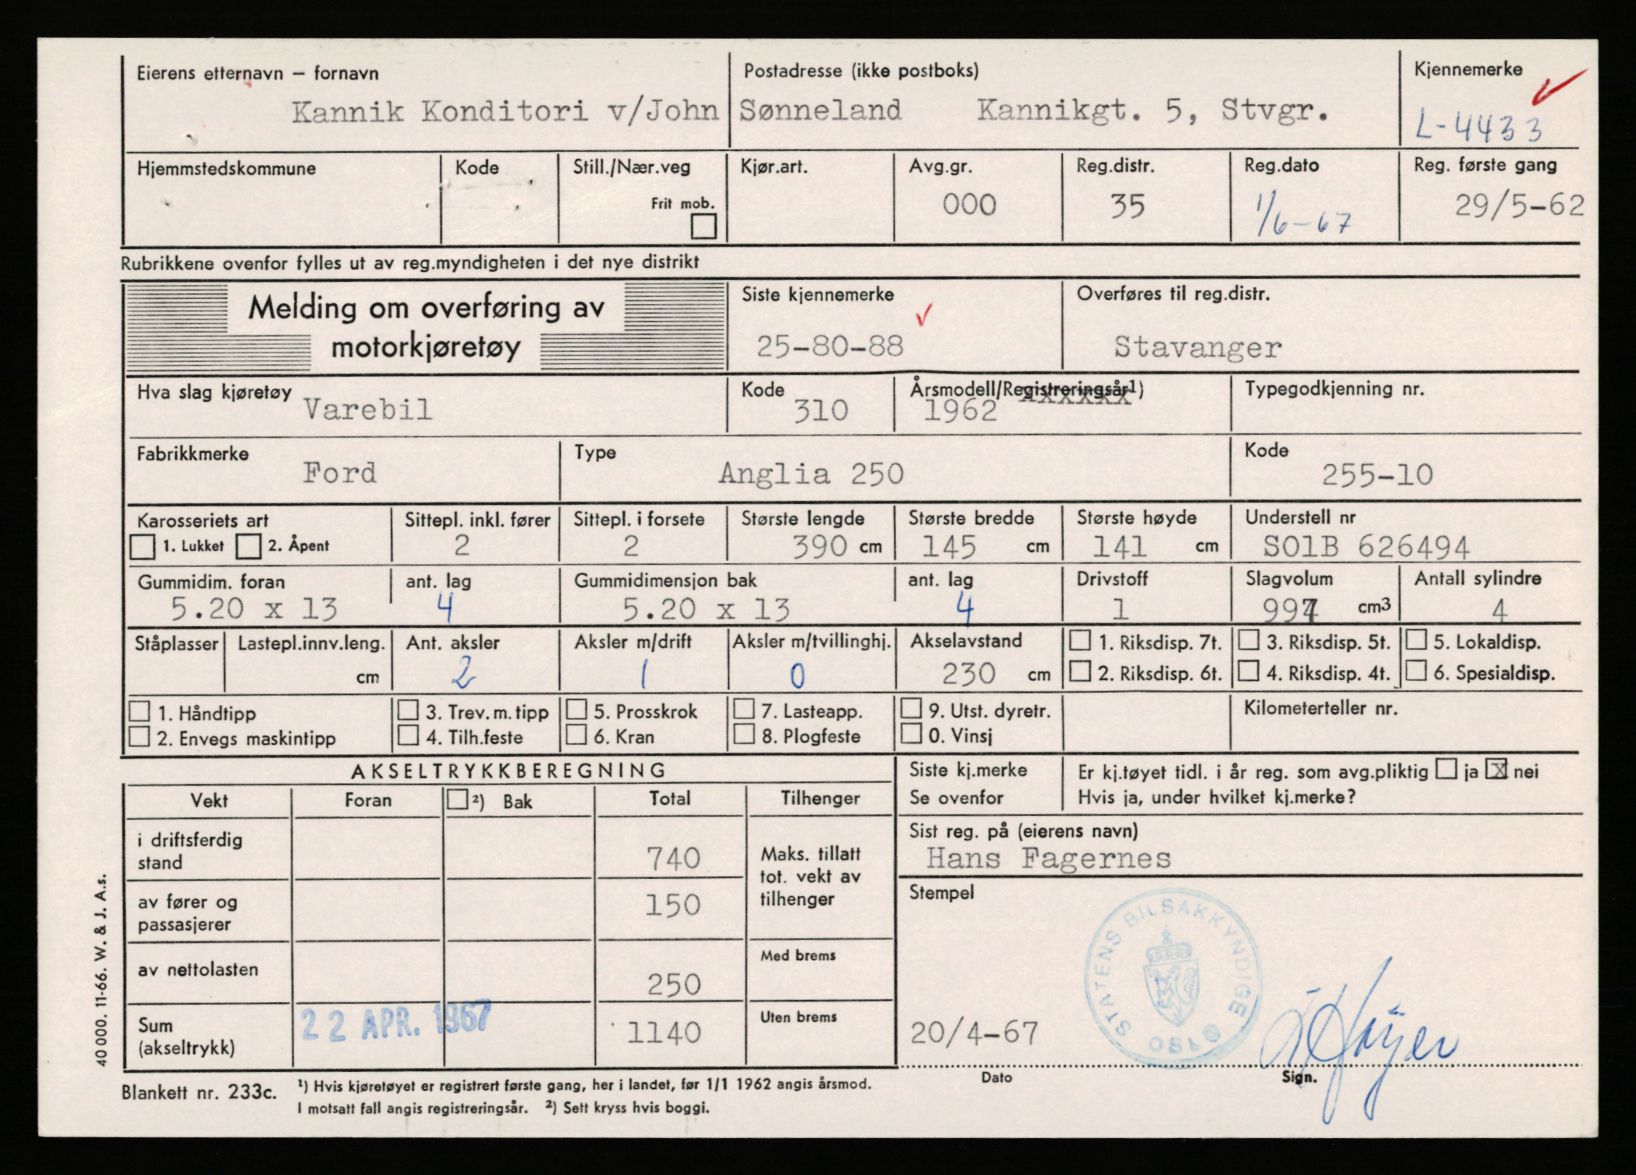 Eierens etternavn – fornavn
Kannik Konditori v/John
Postadresse (ikke postboks)
Sønneland Kannikgt. 5, Stvgr.
Kjennemerke
L-4433
Hjemmstedskommune
Kode
Still./Nær.veg
Frit mob.
Kjør.art.
Avg.gr.
000
Reg.distr.
35
Reg.dato
1/6-67
Reg. første gang
29/5-62
Rubrikkene ovenfor fylles ut av reg.myndigheten i det nye distrikt
Melding om overføring av
motorkjøretøy
Siste kjennemerke
25-80-88
Overføres til reg.distr.
Stavanger
Hva slag kjøretøy
Varebil
Kode
310
Årsmodell/Registreringsår¹)
xxxxxx
1962
Typegodkjenning nr.
Fabrikkmerke
Ford
Type
Anglia 250
Kode
255-10
Karosseriets art
1. Lukket 2. Åpent
Sittepl. inkl. fører
2
Sittepl. i forsete
2
Største lengde
390 cm
Største bredde
145 cm
Største høyde
141 cm
Understell nr
SO1B 626494
Gummidim. foran
5.20 x 13
ant. lag
4
Gummidimensjon bak
5.20 x 13
ant. lag
4
Drivstoff
1
Slagvolum
997 cm3
Antall sylindre
4
Ståplasser
Lastepl.innv.leng.
cm
Ant. aksler
2
Aksler m/drift
1
Aksler m/tvillinghj.
0
Akselavstand
230 cm
1. Riksdisp. 7t.
2. Riksdisp. 6t.
3. Riksdisp. 5t.
4. Riksdisp. 4t.
5. Lokaldisp.
6. Spesialdisp.
1. Håndtipp
2. Envegs maskintipp
3. Trev.m.tipp
4. Tilh.feste
5. Prosskrok
6. Kran
7. Lasteapp.
8. Plogfeste
9. Utst. dyretr.
0. Vinsj
Kilometerteller nr.
AKSELTRYKKBEREGNING
Siste kj.merke
Se ovenfor
Er kj.tøyet tidl. i år reg. som avg.pliktig ja x nei
Hvis ja, under hvilket kj.merke?
Vekt
Foran
²) Bak
Total
Tilhenger
i driftsferdig
stand
740
av fører og
passasjerer
150
av nettolasten
250
Sum
(akseltrykk)
22 APR. 1967
1140
Maks. tillatt
tot. vekt av
tilhenger
Med brems
Uten brems
Sist reg. på (eierens navn)
Hans Fagernes
Stempel
STATENS BILSAKKYNDIGE
OSLO
20/4-67
Dato
Sign.
40 000. 11-66. W. & J. A.s.
Blankett nr. 233c.
¹) Hvis kjøretøyet er registrert første gang, her i landet, før 1/1 1962 angis årsmod.
I motsatt fall angis registreringsår. ²) Sett kryss hvis boggi.